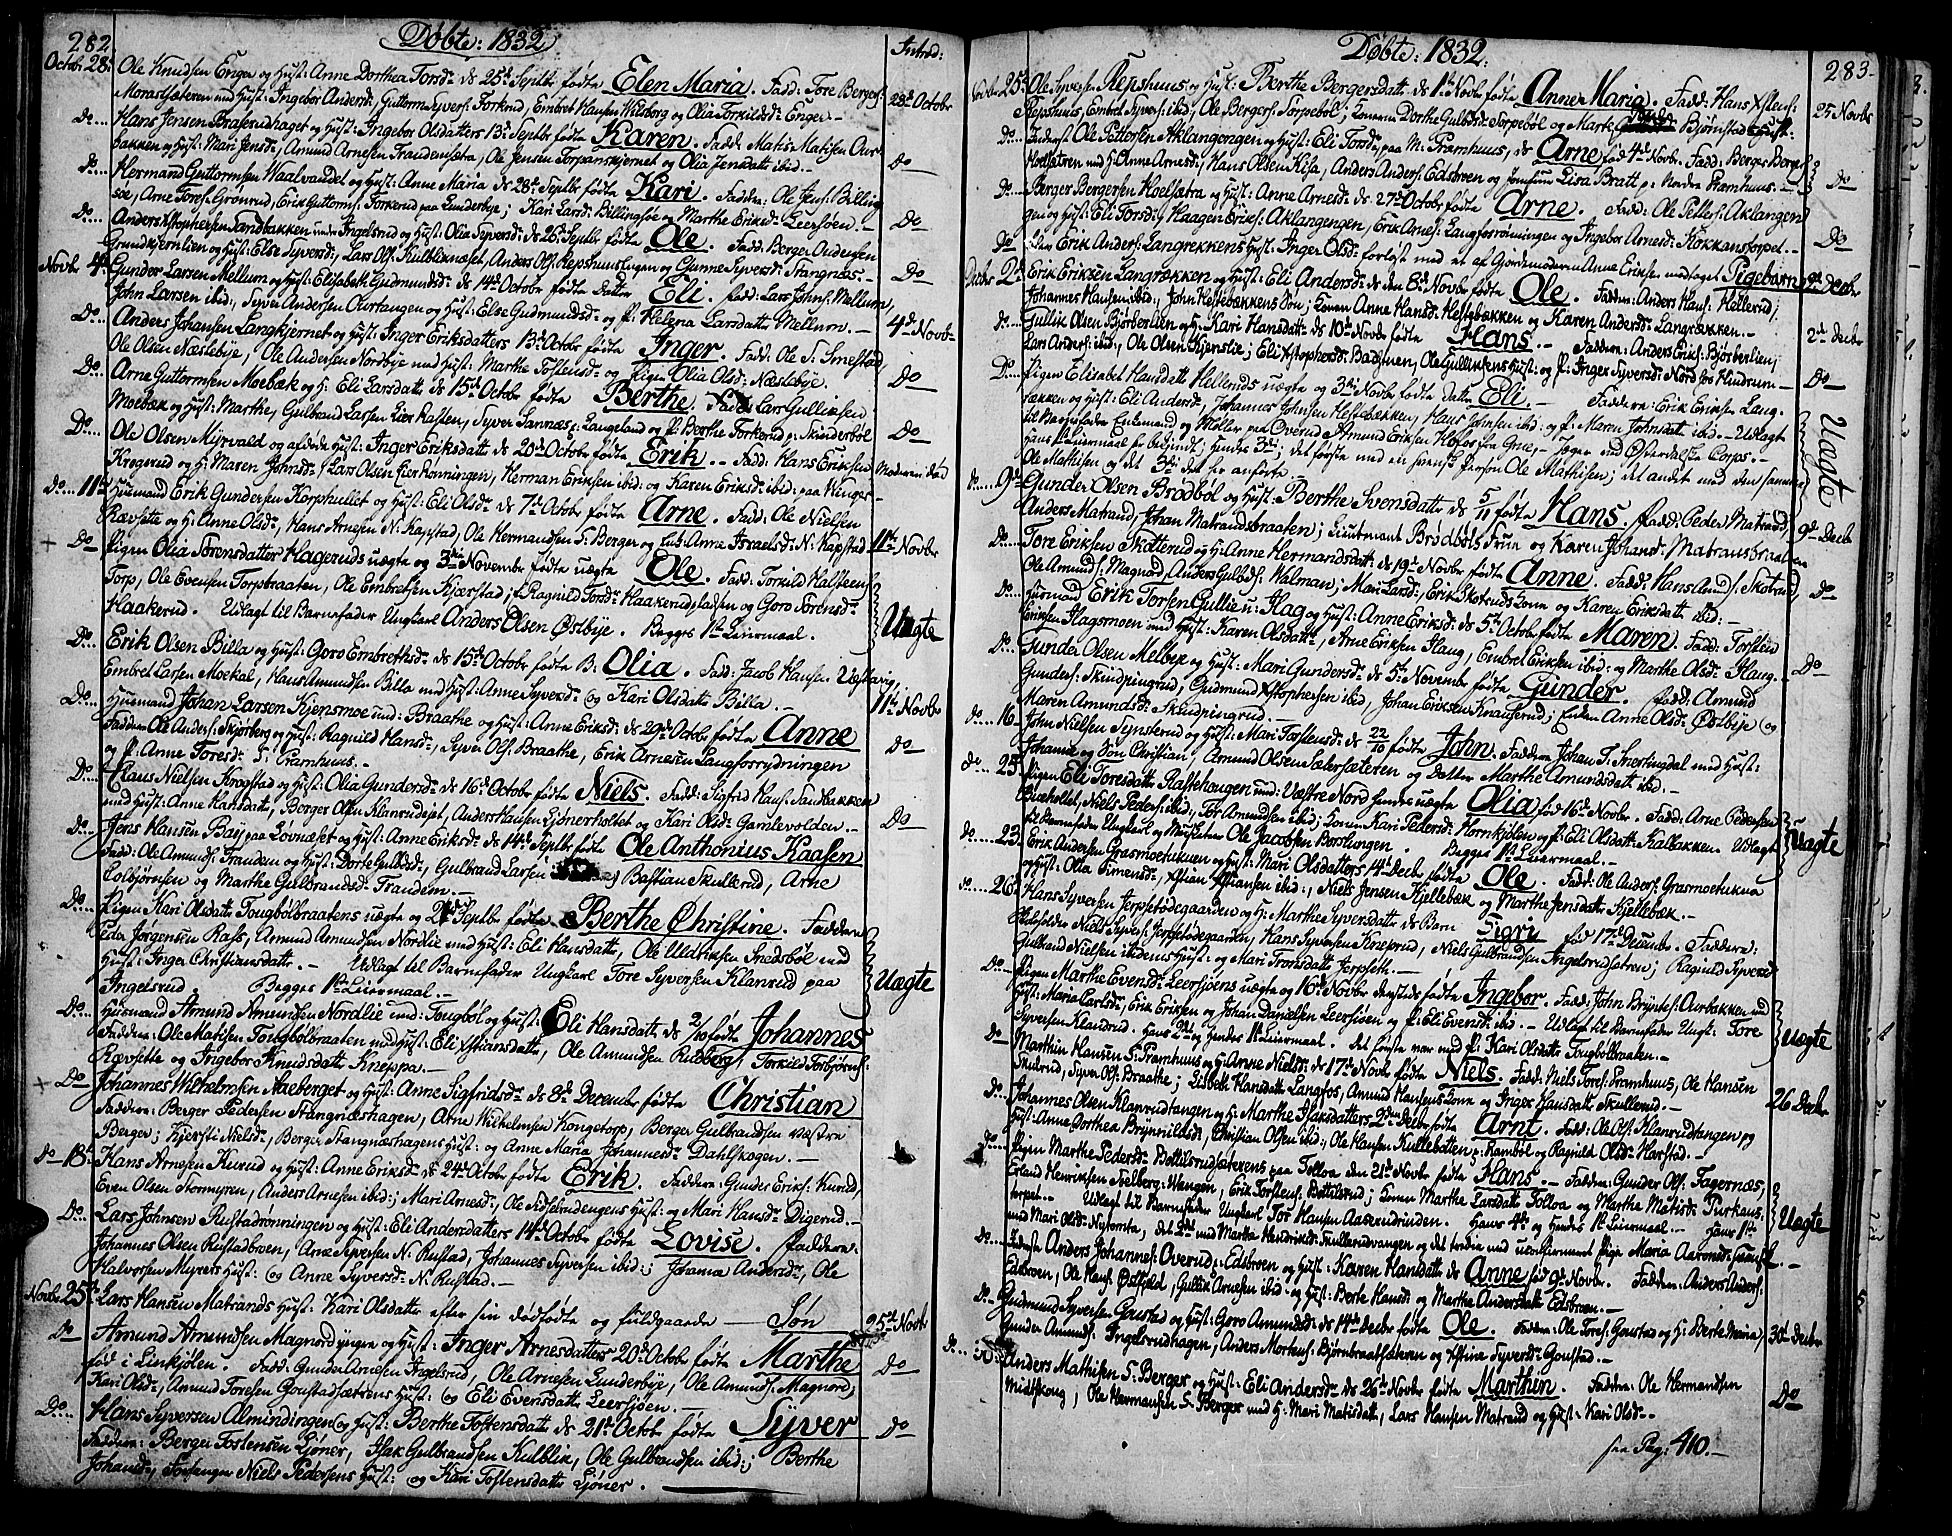 282.
Døbte: 1832
Introd:
Octbr 28. Ole Knudsen Enger og Hust: Anne Dorthea Torsdr. de 25d Septbr fødte Elen Maria. Fadd: Tore Bergers:
Morastsæteren med Hust: Ingebor Andersd: Guttorm Syvers: Torkrud, Embret Hansen Wilsborg og Olia Torkildsdr: Enger. 28d Octobr
Do... Hans Jensen Braserudhaget og Hust: Ingebor Olsdatters 13d Septbr fødte Karen. Fadd: Matis Matisen Aur-
bakken og Hust: Mari Jensdr, Amund Arnesen Traudemsætra, Ole Jensen Torpanskjernet og Olia Jensdatt ibid. Do
Do... Hermand Guttormsen Waalvandet og Hust: Anne Maria de 28d Septbr fødte Kari. Faddere: Ole Jens: Billing
søe, Arne Tores: Grønrud, Erik Guttorms: Torkerud paa Lunderbye; Kari Larsd: Billingsøe og Marthe Eriksd: Leersøen. Do
Do... Anders Xstophersen Sandbakken under Ingelsrud og Hust: Olia Syversd: de 26d Septbr fødte Ole. Fadd: Berger Andersen
Grundkjernlien og Hust: Else Syversd, Lars Ols: Kulbliknæset, Anders Ols: Repshustugen og Gunne Syversd: Strangnæs. Do
Novbr 4de Gunder Larsen Mellum og Hust: Elisabeth Gudmundsd: de 14d Octobr fødte Datter Eli. Fadd: Lars Johns: Mellum,
John Larsen ibid:, Syver Andersen Ourtangen og Hust: Else Gudmundsd: og P: Helena Larsdatt Mellum. 4d Novbr
Do... Anders Johansen Langkjernet og Hust: Inger Eriksdatters 13d Octobr fødte Inger. Fadd: Ole S. Smestad,
Ole Olsen Næstebye, Ole Andersen Nordbye med Hust: Marthe Tostensd: og Pigen Olia Olsd: Næstebye. Do
Do. Arne Guttormsen Moebæk og H: Eli Larsdatt de 15d Octobr fødte Berthe. Fadd: Lars Gulliksen
Moebæk og Hust: Marthe, Gulbrand Larsen Lier Rasten, Syver Sannæs p: Langeland og P: Berthe Torkerud p: Skinderbøl Do
Do... Ole Olsen Myrvald og afdøde Hust: Inger Eriksdatt de 20d Octobr fødte Erik. Fadd: Hans Eriksen
Krogerud og H: Maren Johnsd: Lars Olsen Lier Rønningen, Herman Eriksen ibid: og Karen Eriksd: ibid: paa Winger. Moderen død
Do... 11te Huusmand Erik Gundersen Korphullet og Hust: Eli Olsdr de 7d Octobr fødte Arne. Fadd: Ole Nielsen
Rævsætte og H: Anne Olsd:, Hans Arnesen N. Kapstad, Ole Hermansen S: Berger og Anne Israelsd: N: Kapstad 11te Novbr
Do Pigen Olia Sørensdatter Hagerud uægte og 3die November fødte uægte Ole. Fadd: Torkild Halsteens:
Torp, Ole Evensen Torpbraaten, Ole Embretsen Kjærstad; P. Ragnild Torsd: Haakerudpladsen og Goro Sørensd:
Haakerud. Udlagt til Barnefader Ungkarl Anders Olsen Østbye. Begges 1te Leiermaal. Uægte
Do... Erik Olsen Billa og Hust: Goro Embretsdr de 15d Octobr fødte B. Olia. Fadd: Jacob Hansen Væstvig,
Embret Larsen Moekal, Hans Amundsen Billa med Hust: Anne Syversd: og Kari Olsdatt Billa. 11te Novbr
Do... Huusmand Johan Larsen Kjensmoe und: Braathe og Hust: Anne Eriksd: de 29d Octobr fødte Anne
Faddere Ole Anders: Skjørberg og Hust: Ragnild Hansdr, Syver Ols: Braathe, Erik Arnesen Langforrydningen Do
og P: Anne Toresd: S: Pramhuus.
Do... Claus Nielsen Krogstad og Hust: Olia Gundersdr de 16d Octobr fødte Niels. Fadd: Sigfrid Hans: Sandbakken
med Hust: Anne Hansdatt, Berger Olsen Klanrudeiet, Anders Hansen Ljønerholtet og Kari Olsd: Gamlevolden. Do
Do... Jens Hansen Baÿ paa Lovnæset og Hust: Anne Eriksdr: de 14de Septbr fødte Ole Anthonius Kaasen
Fadd: Ole Amunds: Traudem og Hust: Dorte Gulbrd:, Gulbrand Larsen Bastian Skullerud, Arne
Colbjørnsen og Marthe Gulbrandsd: Trandem.
Do... Pigen Kari Olsdatt Tougbølbraatens uægte og Septbr fødte Berthe Christine. Faddere
Peder Jørgensen Rass, Amund Amundsen Nordlie med Hust: Eli Hansdatt, Ole Uldriksen Snedsbøl med
Hust: Inger Christiansdatt. Udlagt til Barnefader Ungkarl Tore Syversen Klanrud paa
Ingelsrud. Begges 1te Leiermaal. Uægte
Do... Huusmand Amund Amundsen Nordlie und: Tougbøl og Hust: Eli Hansdatt de 2/10 fødte Johannes
Faddere: Ole Matisen Tougbølbraaten med Hust: Eli Xstiansdatt, Ole Amundsen Rudberg, Torkild Torbjørns:
Rævsætte og Ingebor Knudsdatt Kneppa.
Do Johannes Wilhelmsen Aaeberget og Hust: Anne Sigfridsdr de 8d December fødte Christian
Faddere: Berger Pedersen Strangnæshagen, Arne Wilhelmsen Kongetorp, Berger Gulbrandsen Væstre
Berger; Kjersti Nielsd:, Berger Strangnæshagens Hust: og Anne Maria Johannesdr Dahlskogen.
Do 18d Hans Arnesen Kurud og Hust: Anne Eriksdr de 24d Octobr fødte Erik. Faddere: Gunder Eriks: Kurud,
Even Olsen Stormyren, Anders Arnesen ibid:; Mari Arnesdr, Ole Sidselrudengens Hust: og Mari Hansdr Digerud.
Do... Lars Johnsen Rustadrønningen og Hust: Eli Andersdatters 14d Octobr fødte Lovise. Faddere:
Johannes Olsen Rustadbroen, Arne Syversen N: Rustad, Johannes Syversen ibid:; Johanna Andersdr, Ole
Halvorsen Myrers Hust: og Anne Syversdr N: Rustad.
Novbr 25d Lars Hansen Matrands Hust: Kari Olsdatt efter sin dødfødte og fuldgaaede Søn 25d Novbr
Do Amund Amundsen Magnordÿngre og Hust: Inger Arnesdatters 20d Octobr fødte Marthe
fød i Linkjølen. Fadd: Gunder Arnesen Ingelsrud, Ole Arnesen Lunderbye, Ole Amunds: Magnord; Do
Kari Olsdr, Amund Toresen Goustadsætrens Hust: og Eli Evensdatt Leersjøen.
Do... Hans Syversen Almindingen og Hust: Berthe Tostensdatt de 21d Octobr fødte Syver
Faddere: Berger Tostensen Ljøner, Isak Gulbrandsen Kulblik, Ole Gulbrandsen ibid:; Berthe Do
Johansd:, Forsanger Niels Pedersens Hust: og Kari Tostensdatt Ljøner.
Døbte: 1832.
283.
Novbr 25d Ole Syversen Repshuus og Hust: Berthe Bergersdatt de 1te Novbr fødte Anne Maria. Fadd: Hans Xstens:
Repshuus, Embret Syvers: ibid:, Ole Bergers: Torpebøl; Konen Dorthe Gulbrdsd: Torpebøl og Marte Bjørnstad Hust: 25 Novbr
Do... Inderst Ole Pettersen Aklangengen og Hust: Eli Torsdr paa M: Pramhuus, de Arne fød 4d Novbr. Fadd: Berger Bergers:
Hoelsætren med H: Anne Arnesd:, Hans Olsen Kesa, Anders Anders: Edsbroen og Jomfrue Lisa Bratt p: Nordre Pramhuus. Do
Do... Berger Bergersen Hoelsætra og Hust: Anne Arnesdr de 27d Octobr fødte Arne. Fadd: Ole Petters: Aklangen
gen og Hust: Eli Torsdr, Haagen Eriks: Aklangengen, Erik Arnes: Langforrønningen og Ingebor Arnesd: Kokkanstorpet. Do
Do Erik Anders: Langrekkens Hust: Inger Olsd: forløst med et af Gjordemoderen Anne Eriksen modtaget Pigebarn 2d Decbr
Decbr 2d Erik Eriksen Langrækken og Hust: Eli Andersdr de den 8d Novbr fødte Ole. Faddere: Anders Hans: Hellerud;
Johannes Hansen ibid:, John Hestebækkens Søn; Konen Anne Hansd: Hestebækken og Karen Andersd: Langrækken.
Do. Gullik Olsen Bjørberlien og H: Kari Hansdatt de 10d Novbr fødte Hans. Faddere: Anders Eriks: Bjørberlien;
Lars Anders: ibid:, Ole Olsen Kjenslie; Eli Xstophersd: Bagmuen, Ole Gulliksens Hust: og P: Inger Syversd: Nord hos Hindrum. 2d Decbr
Do... Pigen Elisabet Hansdatt Helleruds uægte og 3die Novbr fødte Datter Eli. Faddere: Erik Eriksen Lang-
rækken og Hust: Eli Andersd:, Johannes Johnsen Hestebækken, Hans Johnsen ibid: og P: Maren Johnsdatt ibid. Udlagt
til Barnefader Enkemand og Møller paa Overud Amund Eriksen fra Gue, Jæger ved Østerdalske Corps.
Hans Leiermaal er bekiendt; hendes 3die; det første med en svensk Person Ole Mathisen; det andet med den samme
Ole Mathisen og det 3die det er anførte. Do Uægte
Do. 9de Gunder Olsen Brødbøl og Hust: Berthe Svensdatt de 5/11 fødte Hans. Fadd: Peder Matrand,
Anders Matrand, Johan Matrandsbraaten; Lieutenant Brødbøls Frue og Karen Johansd: Matransbraaten 9de Decbr
Do. Tore Eriksen Skotterud og H: Anne Hermandsdatt de 19d Novbr fødte Anne. Fadd: Hans Amds: Skotrud,
Ole Amunds: Magnord, Anders Gulbds: Walman; Mari Larsd: Erik Skotruds Kone og Karen Eriksdatt ibid: Do
Do. Huusmand Erik Torsen Gullie u: Haug og Hust: Anne Eriksd: de 5te Octobr fødte Maren. Fadd: Torstein
Eriksen Hagsmoen med Hust: Karen Olsdatt, Arne Eriksen Haug, Embret Eriksen ibid: og Marthe Olsd: Haug.
Do... Gunder Olsen Melbye og Hust: Mari Gundersdr de 5te November fødte Gunder. Fadd: Amund Do
Gunders: Skindpingrud, Gudmund Xstophersen ibid, Johan Eriksen Knauserud; Enken Anne Olsdr Østbÿe og
Maren Amundsd: Skindpingrud.
Do 16 John Nielsen Synsterud og Hust: Mari Tostensd: de 22/10 fødte John. Faddere Johan T. Snertingdal med Hust:
Johanna og Søn Christian, Amund Olsen Sætersæteren og Datter Marthe Amundsdatt ibid:
Do 25 Pigen Eli Toresdatt Rastehougen und: Væstre Nord hendes uægte Olia fød 16d Novbr. Fadd: Arne Pedersen
Buæholtet, Niels Peders: ibid:, Tor Amundsen ibid; Konen Kari Pedersd: Hornkjølen og P: Eli Olsdatt Kalbakken. Udlagt
til Barnefader Ungkarl og Musketeer Ole Jacobsen Borstungen. Begges 1te Leiermaal. Uægte
Do... 23 Erik Andersen Grasmoetukuen og Hust: Mari Olsdatters 4d Decbr fødte Ole. Fadd: Ole Anders: Grasmoetukua
og Hust: Olia Simensd:, Xstian Xstiansen ibid:, Niels Jensen Kjellebæk og Marthe Jensdatt Kjellebæk.
Do... 26 Hans Syversen Jerpsetødegaarden og H: Marthe Syversdatt de Barn Sigri fød 17d Decembr. Faddere:
Niels Syvers: Jerpsetødegaarden, Hans Syversen Kneprud, Niels Gulbrandsen Ingelsrudsætren; Ragnild Syversd
Gulbrand Nielsen ibidems Hust: og Mari Tronsdatt Jerpseth.
Do. Pigen Marthe Evensd: Leersjøens uægte og 16d Novbr dersteds fødte Ingebor. Fadd: John Bryntes: Aurbakken med
Hust: Maria Carlsdr, Erik Eriksen og Johan Danielsen Leersjøen og P: Eli Evensd: ibid. Udlagt til Barnefader Ungk: Tore
Syversen Klandrud. Hans 2d og hendes 1te Leiermaal. Det første var med P: Kari Olsdatt Tougbølbraaten. Uægte
Do Marthin Hansen S: Pramhuus og H: Anne Nielsd: de 17d Novbr fødte Niels. Fadd: Niels Tores: Pramhuus, Ole Hansen
Skulrud, Syver Ols: Braathe; Lisbeth Hansdatt Langfos, Amund Hansens Kone og Inger Hansdatt Skullerud.
Do. Johannes Olsen Klanrudtangen og H: Marthe Isaksdatters 2den Decbr fødte Arnt. Fadd: Ole Ols: Klanrudtangen og 26 Decbr
Hust: Anne Dorthea Brynnildsd:, Christian Olsen ibid:, Ole Hansen Kullebøtten p: Rambøl og Ragnild Olsdr Harstad.
Do... Pigen Marthe Pedersd: Bottilsrudsæterens paa Tolloa den 21d Novbr fødte Hans. Faddere: Gunder Ols: Fagernæs,
Erland Henriksen Svelberg: Wangen, Erik Torstens: Bottilsrud; Konen Marthe Larsdatt Tolloa og Martha Matisd: Purkans-
torpet. Udlagt til Barnefader Ungkarl Tor Hansen Aaserudrinden. Hans 4de og hendes 1te Leiermaal. Hans 1te
med Mari Olsdr Nytomta, det 2d med Martha Hendriksd: Skullerudvangen og det tredie med uconfirmeret Pige Maria Aaronsd: Uægte
Do... Inderst Anders Johannes: Overud p: Edsbroen og Hust: Karen Hansdatt de Anne fød 9d Novbr. Faddere: Anders Anders:
Edsbroen, Ole Hans: Østfjeld, Gullik Arnesen ibid og Hust: Berte Hansd: og Marthe Andersdatt Edsbroen.
Do Gudmund Syversen Goustad og Hust: Goro Amundsd: de 14d Decbr fødte Ole. Faddere: Ole Tores: Goustad og H: Berte Maria;
Gunder Amunds: Ingelsrudhagen, Anders Mortens: Bjørnbraatsæteren og Xstina Syversdr Goustad. 30d Decbr
Do... 30 Anders Mathisen S: Berger og Hust: Eli Andersdr de 26d Novbr fødte Marthin. Faddere: Ole Hermandsen
Midtskoug, Ole Hermansen S: Berger med H: Mari Matisdatt, Lars Hansen Matrand og Hust: Kari Olsdr. Do
see Pag: 410.